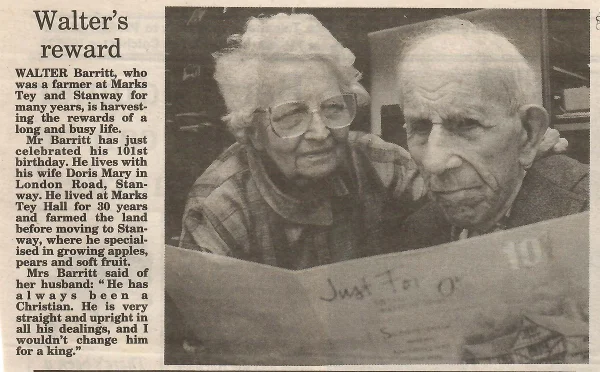 Walter's
reward
WALTER Barritt, who
was a farmer at Marks
Tey and Stanway for
many years, is harvest-
ing the rewards of a
long and busy life.
Mr Barritt has just
celebrated his 101st
birthday. He lives with
his wife Doris Mary in
London Road, Stan-
way. He lived at Marks
Tey Hall for 30 years
and farmed the land
before moving to Stan-
way, where he special-
ised in growing apples,
pears and soft fruit.
Mrs Barritt said of
her husband: "He has
always been a
Christian. He is very
straight and upright in
all his dealings, and I
wouldn't change him
for a king."
Just For